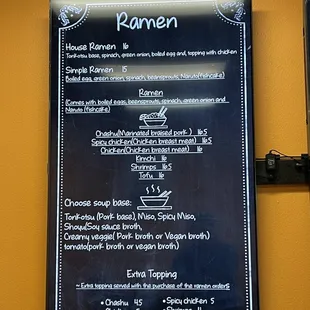 Ramen
House Ramen 16
Tonkotsu base, spinach, green onion, boiled egg and, topping with chicken
Simple Ramen 15
Boiled egg, green onion, spinach, beansprouts Naruto(fishcake)
Ramen
(Comes with boiled eggs, beensprouts, spinach, green onion and
Naruto (fishcake)
Chashu(Marinated braised pork ) 16.5
Spicy chicken(Chicken breast meat) 16.5
Chicken(Chicken breast meat) 16
Kimchi 16
Shrimps 16.5
Tofu 16
Choose soup base:
Tonkotsu (Pork base), Miso, Spicy Miso,
Shoyu(Soy sauce broth,
Creamy veggie( Pork broth or Vegan broth)
tomato(pork broth or vegan broth)
Extra Topping
~ Extra topping served with the purchase of the ramen orders
• Chashu 4.5 • Spicy chicken 5